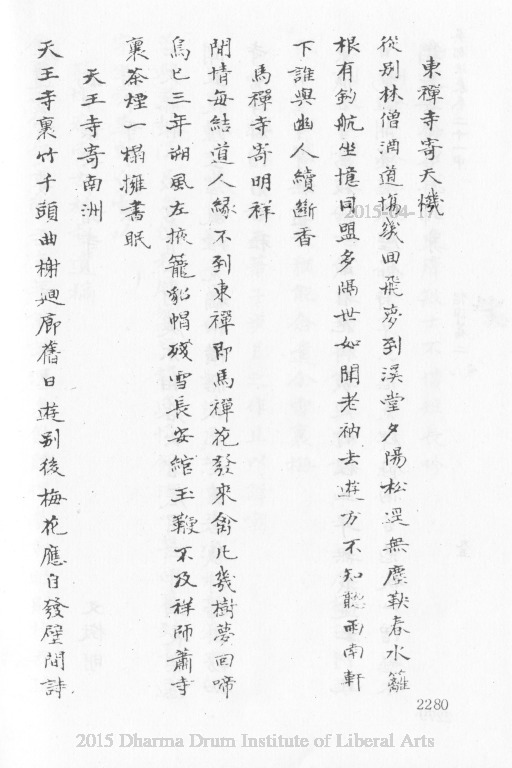 東禪寺寄天機
從別林僧酒道場幾回飛夢到溪堂夕陽松逕無塵躅春水籬
根有釣航坐憶同盟多隔世如聞老衲去遊方不知聽雨南軒
下誰與幽人續斷香
馬禪寺寄明祥
閒情每結道人緣不到東禪即馬禪花發來禽凡幾樹夢回啼
鳥已三年朔風左掖籠貂帽殘雪長安綰玉鞭不及祥師蕭寺
裏茶煙一榻擁書眠
天王寺寄南洲
天王寺裏竹千頭曲榭迴廊舊日遊別後梅花應自發壁間詩
2280
2015-04-17
2015 Dharma Drum Institute of Liberal Arts